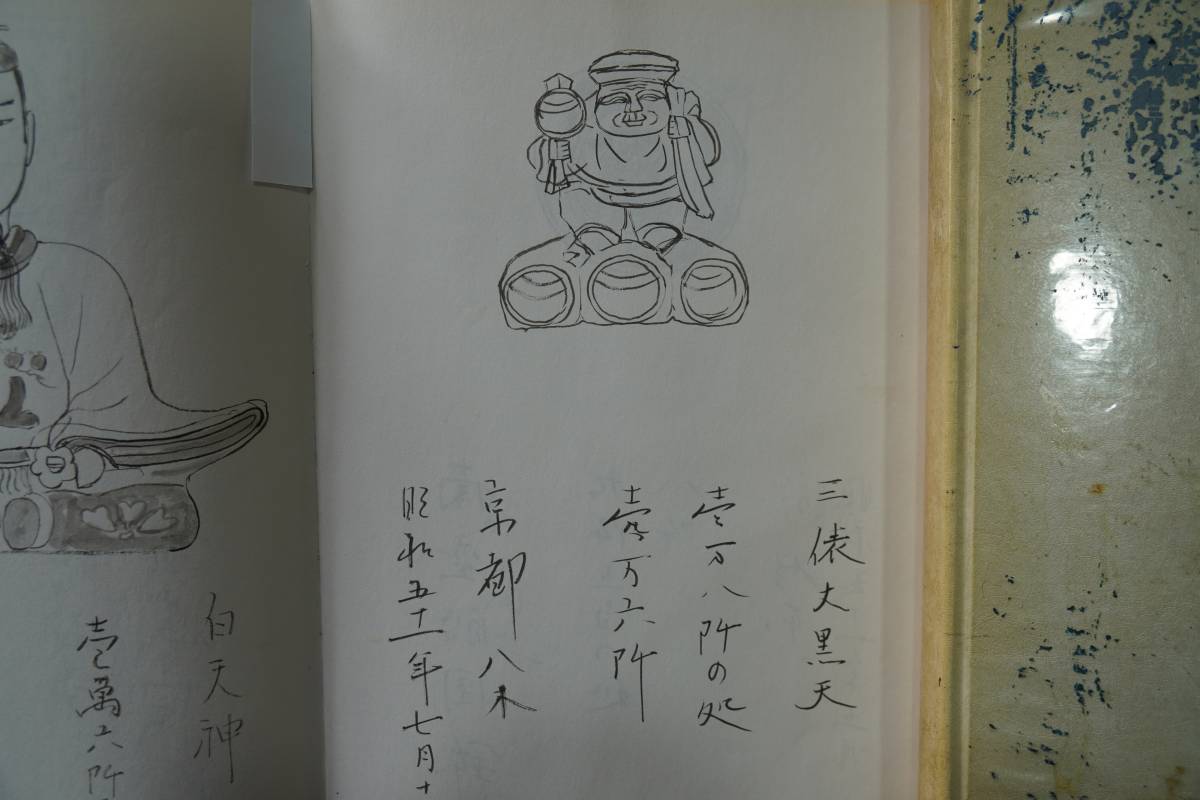 三俵大黒天
壱万八阡の処
壱万六阡
京都八木
昭和五十一年七月十
白天神
壱萬六阡